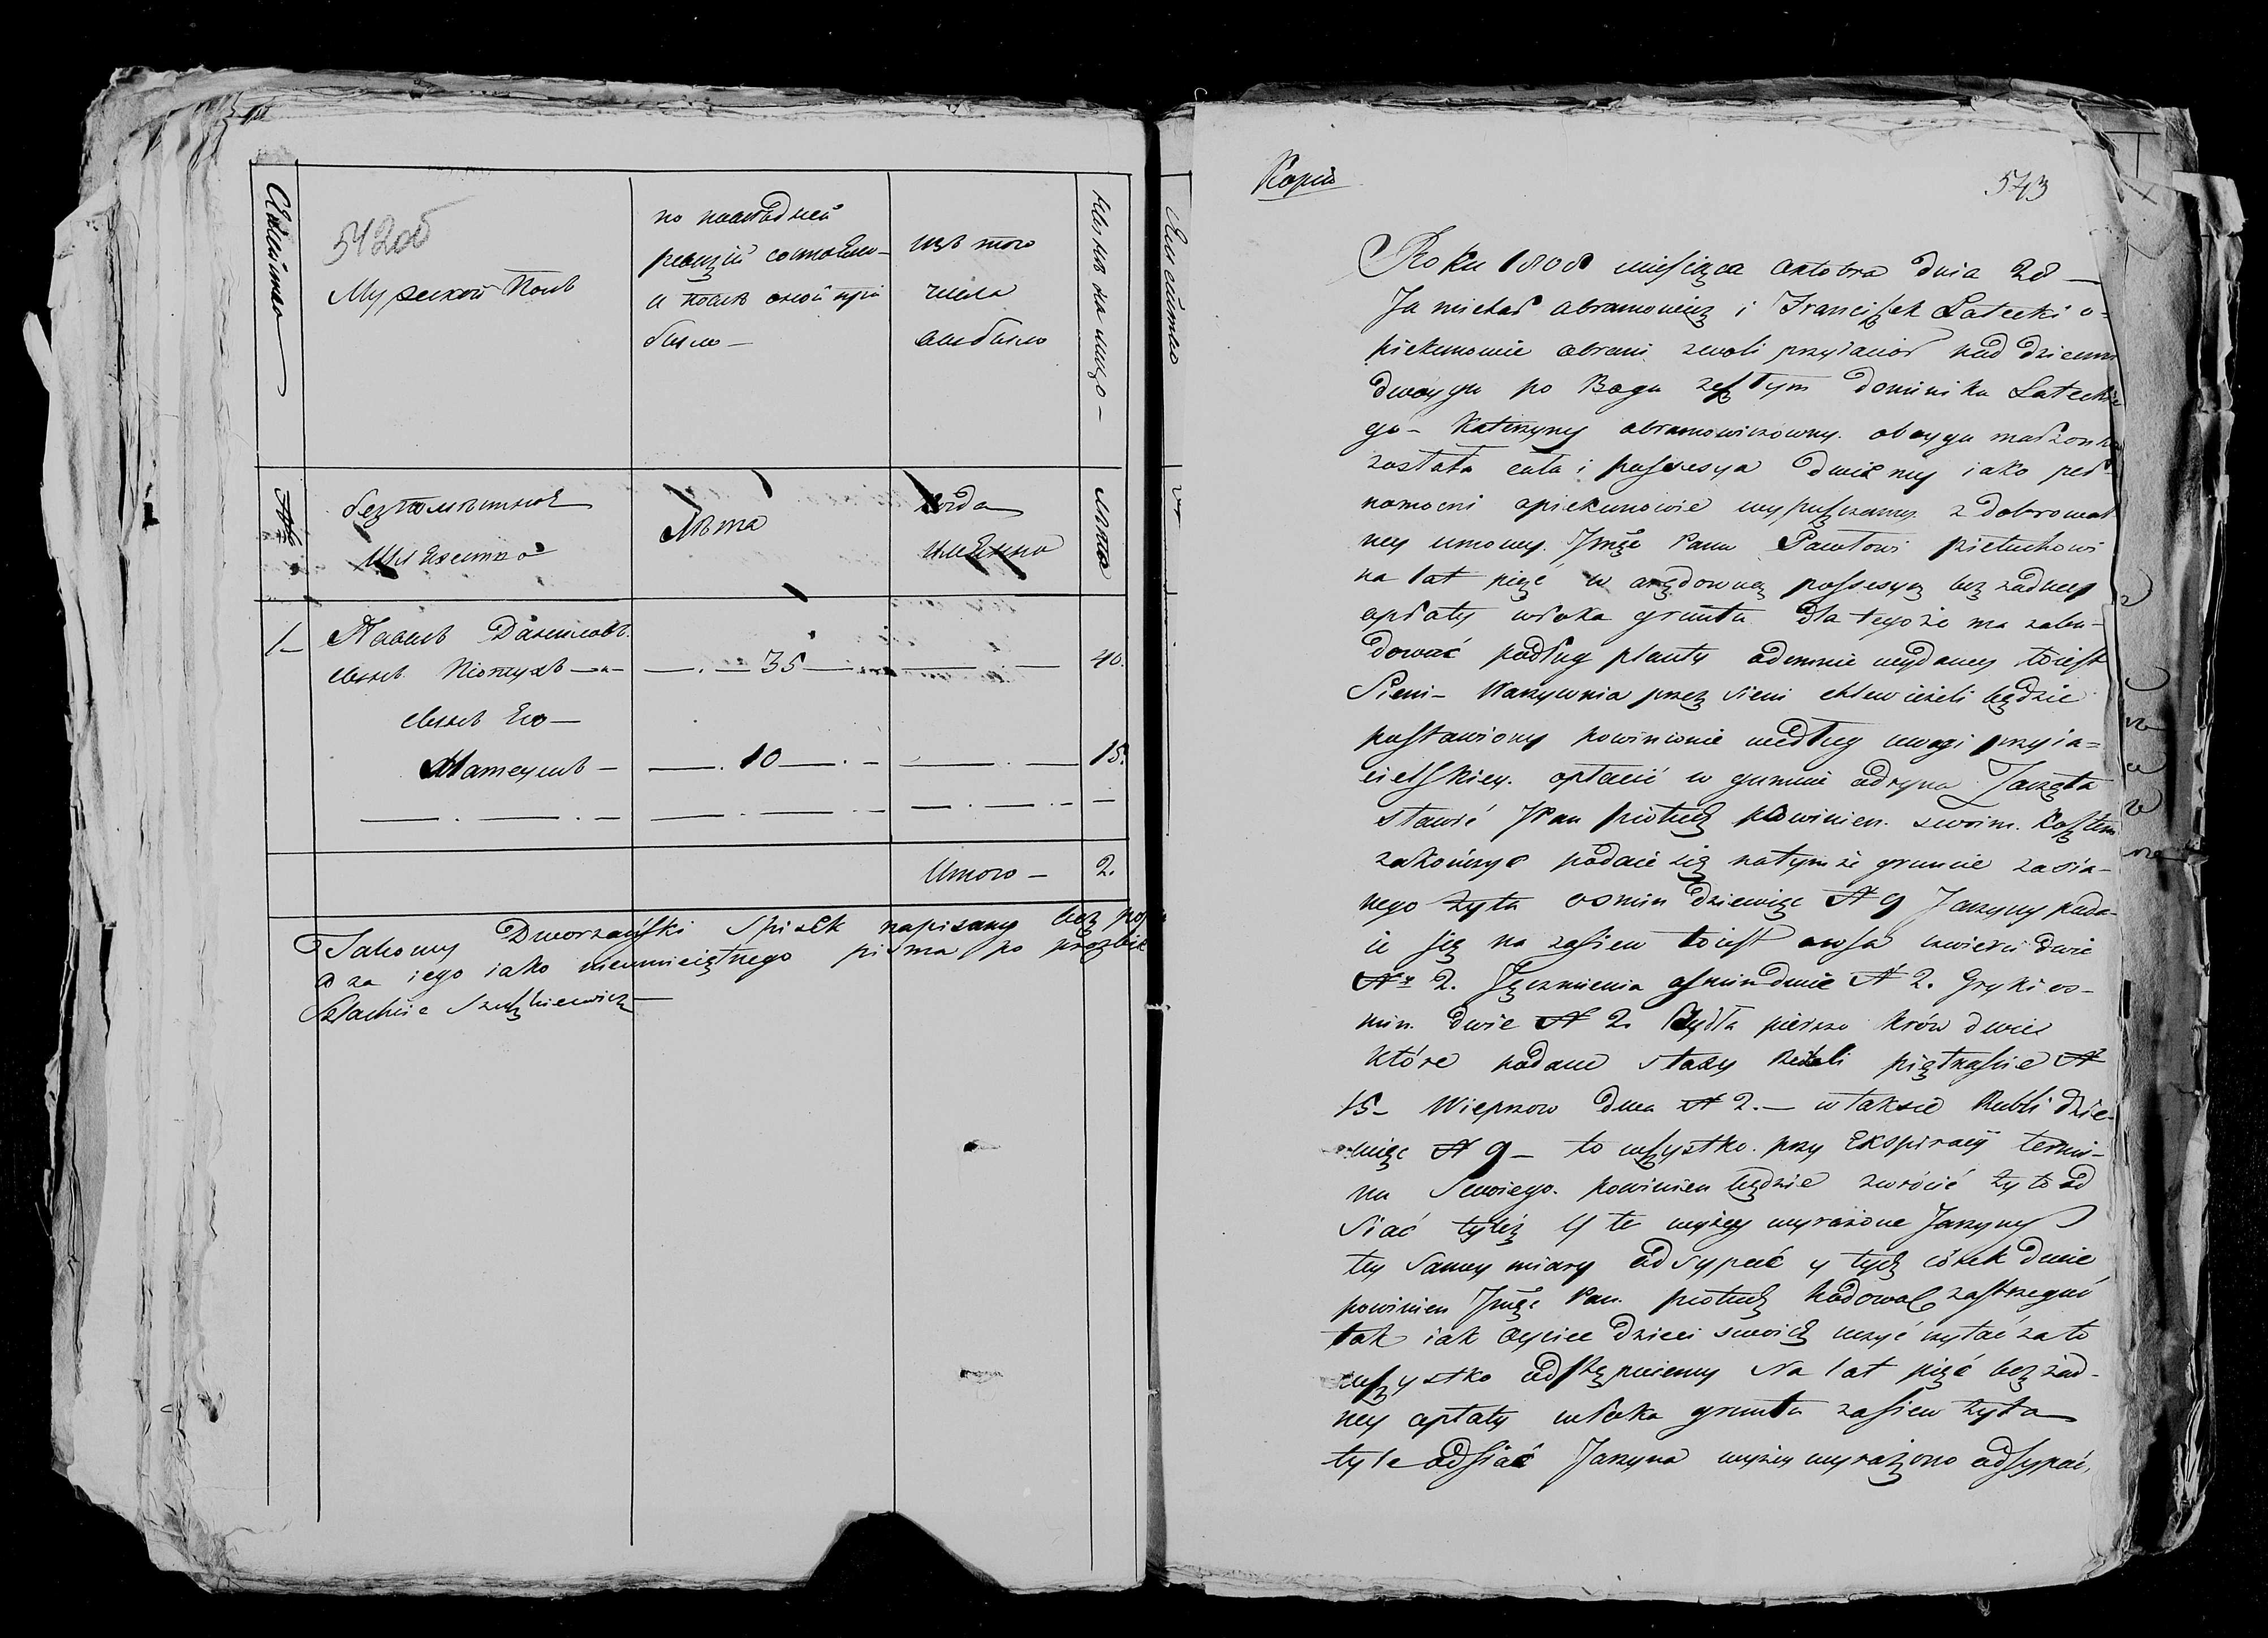 542об
Мужеской полъ
по последней
ревизiи состояло
и после оной при
было —
изъ того
числа
выбыло
Ныне на лицо —
№
безпоместной
шляхтичь
лета
когда
именно
лета
1 Павелъ Даниловъ
сынъ Пiотухъ — 35 — 40.
сынъ Его —
Матеушъ — 10 — 15.
Итого — 2.
Takowy Dworzański Spisek napisany bez po
a za iego iako nieumieiętnego pisma po prozbie
Szlachcic
Kopia
543
Roku 1808 miesiąca Oktobra dnia 28 —
Ja michał Abramowicz i Franciszek Łatecki o=
piekunowie obrani z woli przyiacioł nad dziećmi
dwoygu po Bogu zeszłym Dominiku Łateckie
go — Katerzyny Abramowiczowny. oboygu małżonka
została cała i possesya dwie my iako peł-
nomocni opiekunowie wypuszczamy z dobrowol
ney umowy. Jmże Panu Pawłowi pietuchowi
na lat pięć w arędowną possesyą bez zadney
opłaty włoka gruntu dla tego że ma zabu-
dować podług planty odemnie wydaney toiest
Sieni — Warzywnia przez sieni chlew ieżeli będzie
postawiony powinienie według uwagi przyia=
cielskiey. opłacić w gumnie odryna Zaczęta
stawić JPan piotuch powinien. swoim. Kosztem
zakończyć podaie się natymże gruncie zasia-
nego żyta osmin dziewięć N 9 Jarzyny poda-
ie się na zasiew toiest owsa czwierci dwie
N 2. Jęczmienia osmin dwie N 2. Gryki os-
min. dwie N 2. Bydła pierszo krów dwie
które podane stasy Rubli piętnaście N
15 — Wieprzow dwa N 2. — w taksie Rubli dzie-
więć N 9 — to wszystko. przy Ekspiracÿ termi-
nu Swoiego. powinien będzie zwrócić żyto od
siać tyleż y te wyżey wyrażone Jarzyny
tey samey miary odsypać y tych córek dwie
powinien Jmże Pan. piotuch hodować zastrzegać
tak iak Oyciec dzieci swoich uczyć czytać za to
wszystko odstępuiemy Na lat pięć bez żad-
ney opłaty włoka gruntu zasiew żyta
tyle odsiać Jarzyna wyżey wyrażono odsypać,